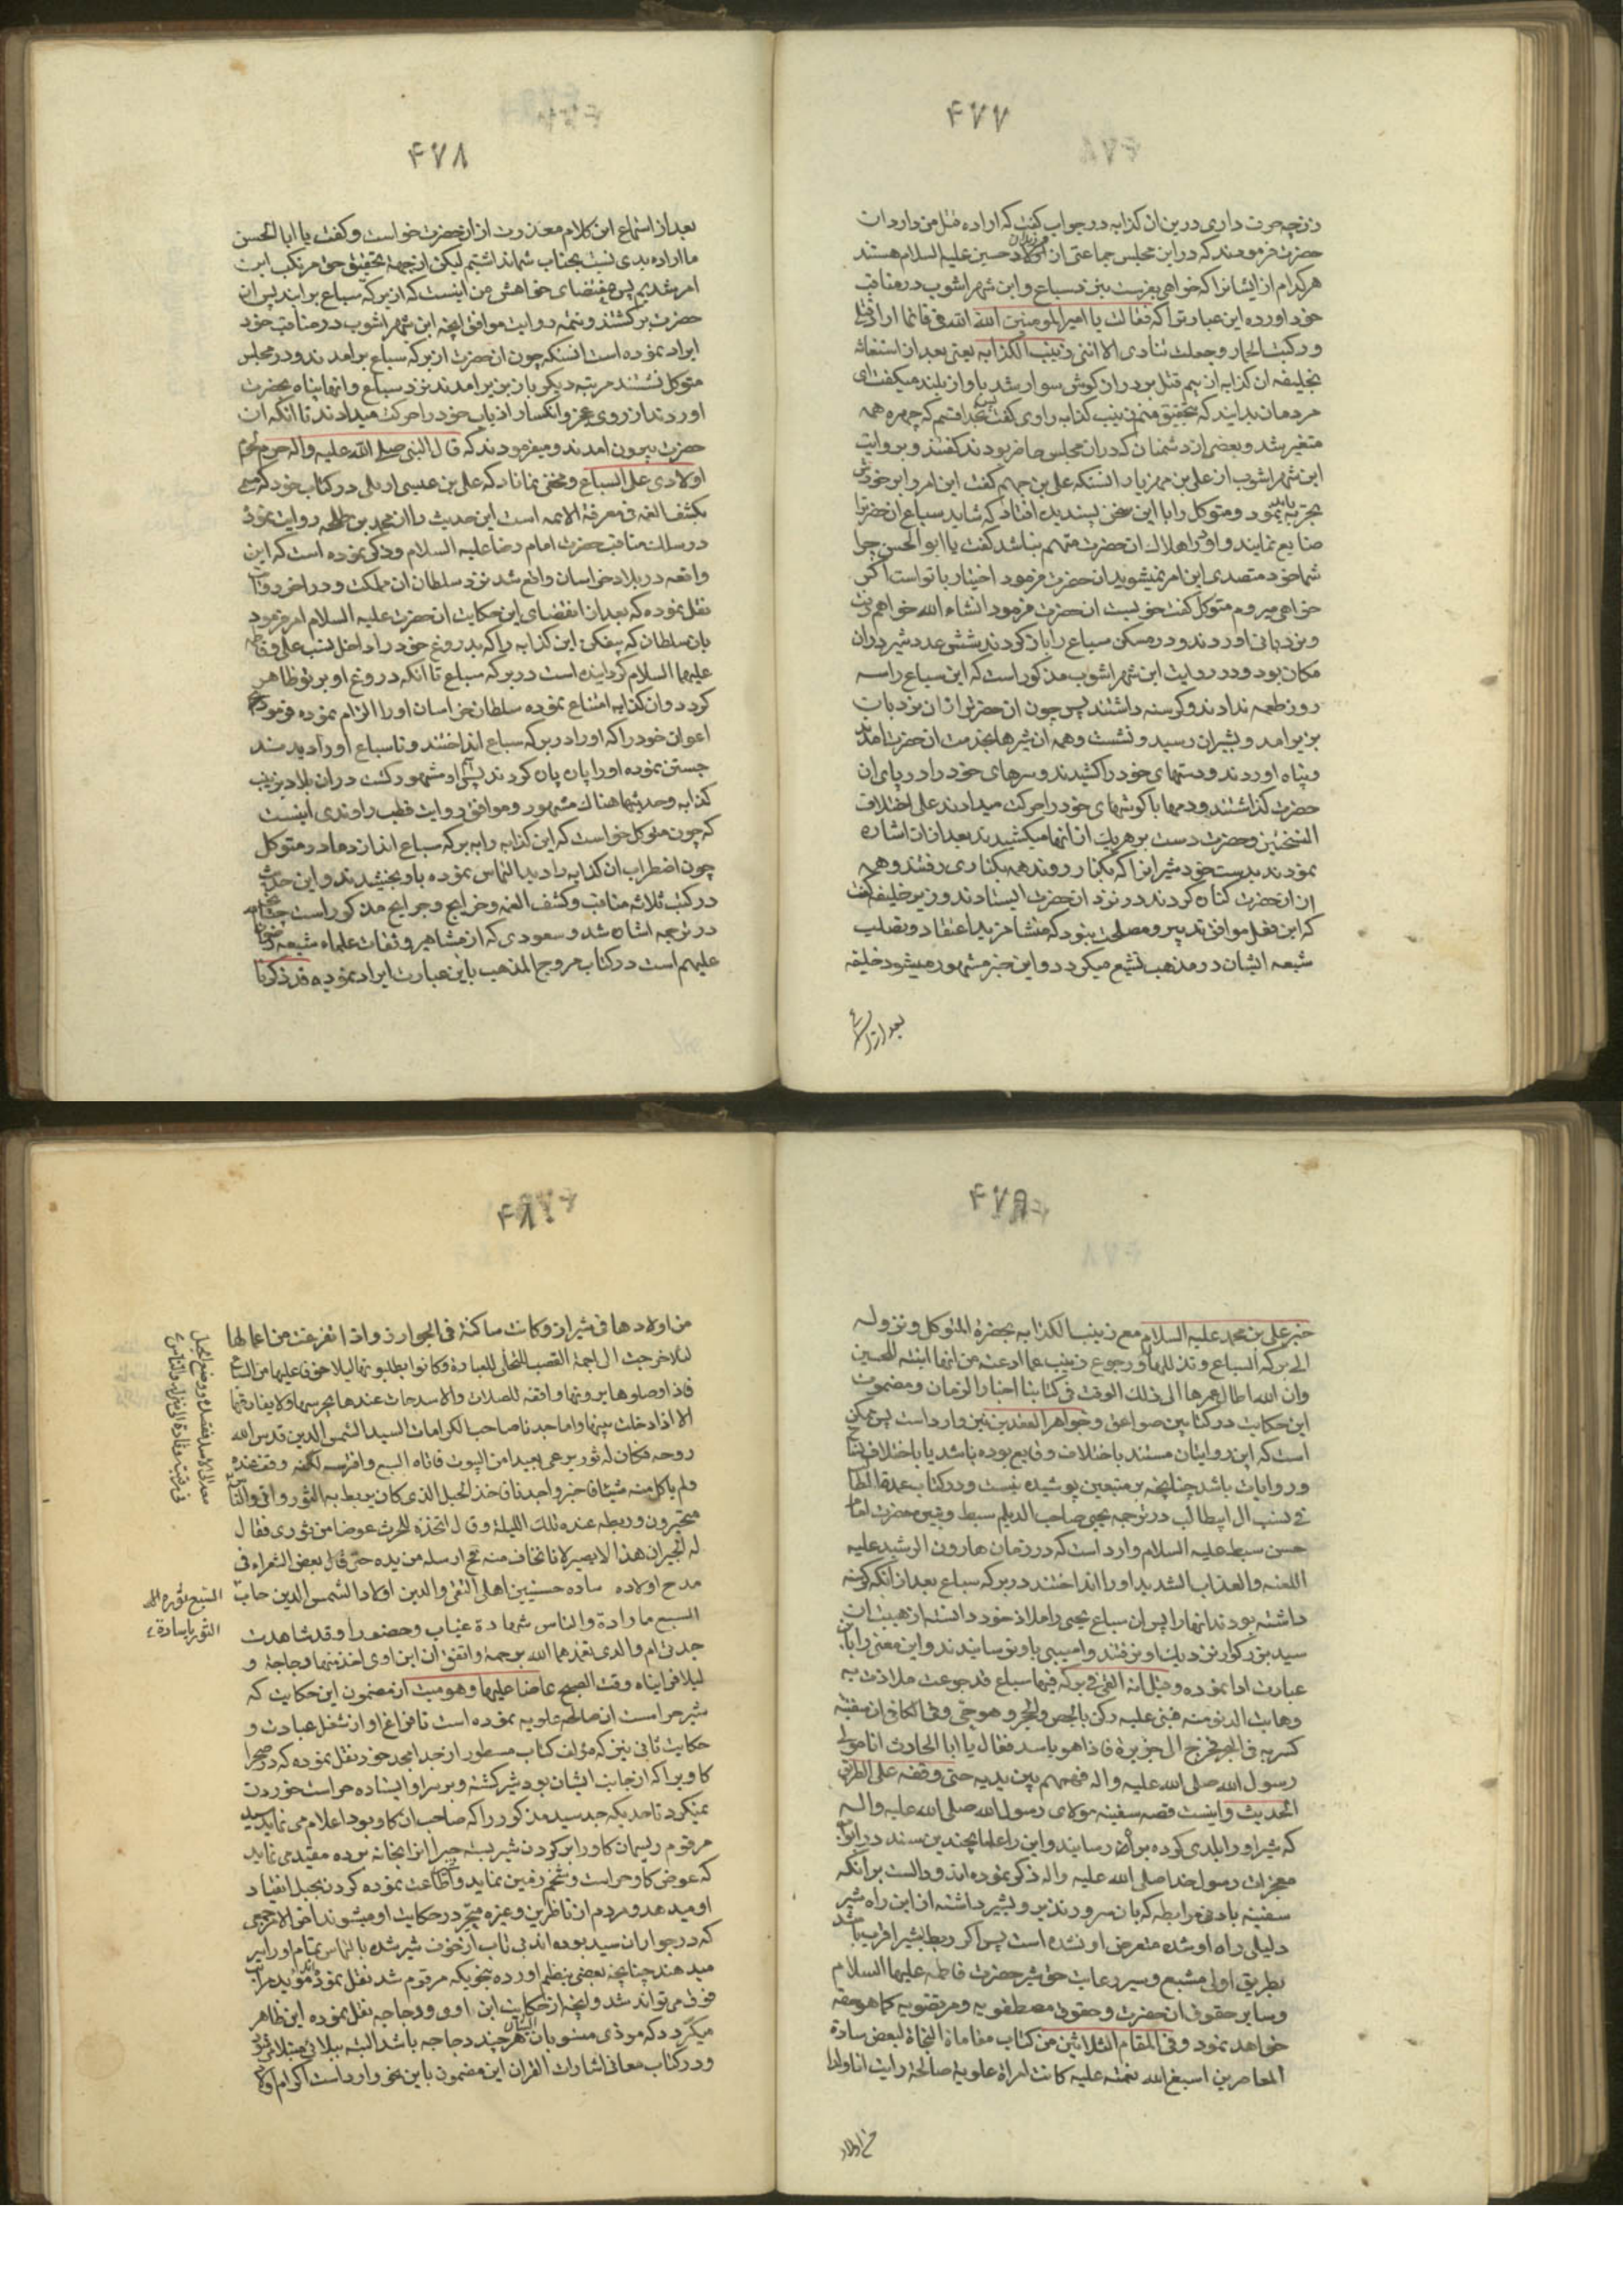 ۴۷۷
زنچه حرف داری درین ان کذابه در جواب کفت که اراده قتل من دارد ان
حضرت فرمودند که در این مجلس جماعتی از اولاد حسین علیه السلام هستند
هر کدام از ایشانرا که خواهی بفرست بنزد سباع و ابن شهراشوب در مناقب
خود اورده این عبارترا که فقالت یا امیر المومنین الله الله فی فانما اراد قتلی
و رکبت الحمار و جعلت تنادی الا اننی زینب الکذابه یعنی بعد از استغاثه
بخلیفه ان کذابه از بیم قتل بر دراز کوش سوار شد باواز بلند میکفت ای
مردمان بدانید که بتحقیق منم زینب کذابه راوی کفت پس بخدا قسم که چهره همه
متغیر شد و بعضی از دشمنان که دران مجلس حاضر بودند کفتند و بروایت
ابن شهراشوب از علی بن مهزیار انستکه علی بن جهم کفت این امر را بر خودش
تجربه باید نمود و متوکل را با این سخن پسندیده افتاد که شاید سباع انحضرترا
ضایع نمایند و او در اهلاک ان حضرت متهم نباشد کفت یا ابو الحسن چرا
شما خود متصدی این امر نمیشوید ان حضرت فرمود اختیار با تواست اکر
خواهی میروم متوکل کفت خوبست ان حضرت فرمود انشاء الله خواهم رفت
و نردبانی اوردند و در مسکن سباع را باز کردند شش عدد شیر دران
مکان بود و در روایت ابن شهراشوب مذکور است که این سباع را سه
روز طعمه ندادند و کرسنه داشتند پس چون ان حضرت از ان نردبان
بزیر امد و بشیران رسید و نشست و همه ان شیرها بخدمت ان حضرت امدند
و پناه اوردند و دستهای خود را کشیدند و سرهای خود را در پای ان
حضرت کذاشتند و دمها با کوشهای خود را حرکت میدادند علی اختلاف
النسختین و حضرت دست بر هر یک از انها میکشیدند بعد ازان اشاره
نمودند بدست خود شیرانرا که بکنار روند همه بکناری رفتند و همه
از ان حضرت کناره کردند در نزد ان حضرت ایستادند وزیر خلیفه کفت
که این فعل موافق تدبیر و مصلحت نبود که منشا مزید اعتقاد و تصلب
شیعه ایشان در مذهب تشیع میکردد و این خبر مشهور میشود خلیفه
بعد از
۴۷۸
بعد از استماع این کلام معذرت از ان حضرت خواست و کفت یا ابا الحسن
ما اراده بدی نسبت بجناب شما نداشتیم لیکن از جهة تحقیق حق مرتکب این
امر شدیم پس مقتضای خواهش من اینست که از برکه سباع برایند پس ان
حضرت برکشتند و تتمه روایت موافق انچه ابن شهراشوب در مناقب خود
ایراد نموده است انستکه چون ان حضرت از برکه سباع برامدند و در مجلس
متوکل نشستند مرتبه دیکر باز بزیر امدند نزد سباع و انها پناه بحضرت
اوردند از روی عجز و انکسار اذناب خود را حرکت میدادند تا انکه ان
حضرت بیرون امدند و میفرمودند که قال النبی صلی الله علیه واله حرم لحوم
اولادی علی السباع و مخفی نماناد که علی بن عیسی اربلی در کتاب خود که مسمی
بکشف الغمه فی معرفة الائمه است این حدیث را از محمد بن طلحه روایت نموده
در سلک مناقب حضرت امام رضا علیه السلام و ذکر نموده است که این
واقعه در بلاد خراسان واقع شد نزد سلطان ان مملکت و در اخر وقایع
نقل نموده که بعد از انقضای این حکایت ان حضرت علیه السلام امر فرمود
بان سلطان که بیفکن این کذابه را که بدروغ خود را داخل نسب علی و فاطمه
علیهما السلام کردانیده است در برکه سباع تا انکه دروغ او بر تو ظاهر
کردد و ان کذابه امتناع نموده سلطان خراسان او را الزام نموده فرمود
اعوان خود را که او را در برکه سباع انداختند و تا سباع او را دیدند
جستن نموده او را پاره پاره کردند پس او مشهور کشت دران بلاد بزینب
کذابه و حدیثها هناک مشهور و موافق روایت قطب راوندی اینست
که چون متوکل خواست که این کذابه را به برکه سباع اندازد مادر متوکل
چون اضطراب ان کذابه را دید التماس نموده باو بخشیدند و این حدیث
در کتب ثلاثه مناقب و کشف الغمه و خرایج و جرایج مذکور است چنانچه
در ترجمه اشاره شد و سعودی که از مشاهیر و ثقات علماء شیعه رضوان
علیهم است در کتاب مروج المذهب باین عبارت ایراد نموده قد ذکرنا
۴۷۹
خبر علی بن محمد علیه السلام مع زینب الکذابه بحضرة المتوکل و نزوله
الی برکه السباع و تذللها و رجوع زینب عما ادعته من انها ابنته للحسین
وان الله اطال عمرها الی ذلک الوقت فی کتابنا اخبار الزمان و مضمون
این حکایت در کتابین صواعق و جواهر العقدین نیز وارد است پس ممکن
است که این روایتان مستند باختلاف وقایع بوده باشد یا باختلاف
و روایات باشد چنانچه بر متتبعین پوشیده نیست و در کتاب عمدة الطالب
فی نسب ال ابیطالب در ترجمه یحیی صاحب الدیلم سبط و نبیره حضرت امام
حسن سبط علیه السلام وارد است که در زمان هارون الرشید علیه
اللعنه و العذاب الشدید او را انداختند در برکه سباع بعد از انکه کرسنه
داشته بودند انها را پس ان سباع یحیی را ملاذ خود دانسته از هیبت ان
سید بزرکوار نزدیک او نرفتند و اسیبی باو نرسانیدند و این معنی را باین
عبارت ادا نموده و قیل انه القی فی برکه فیها سباع قد جوعت فلاذت به
وهابت الدنو منه فبنی علیه رکن بالجص والحجر وهو حی وفی الکافی ان سفینه
کسر به فی البحر فخرج الی جزیرة فاذا هو باسد فقال یا ابا الحارث انا مولی
رسول الله صلی الله علیه واله فهمهم بین یدیه حتی وقفه علی الطریق
الحدیث و اینست قصه سفینه مولای رسول الله صلی الله علیه واله
که شیر او را بلدی کرده براه رسانید و این را علما بچندین سند در ابواب
معجزات رسول خدا صلی الله علیه واله ذکر نموده اند و دالست برانکه
سفینه بادنی رابطه که بان سرور نذیر و بشیر داشته ازین راه شیر
دلیلی راه او شده متعرض او نشده است پس اکر ربط بشیر اقرب باشد
بطریق اولی متتبع و سیر رعایت حق شیر حضرت فاطمه علیها السلام
و سایر حقوق ان حضرت و حقوق مصطفویه و مرتضویه کما هو حقه
خواهد نمود و فی المقام الثلاثین من کتاب مقامات النجاة لبعض سادة
المعاصرین اسبغ الله نعمته علیه کانت امراة علویة صالحة رایت انا ولدا
من اولاد
۴۸۰
من اولادها فی شیراز و کانت ساکنة فی الجوارز و اذا تفرغت من اعمالها
لیلا خرجت الی اجمة القصب للتخلی للعبادة وکانوا یطلبونها لیلا خوفا علیها من السباع
فاذا وصلوها یرونها واقفه للصلات والاسد جاث عندها یحرسها ولا یفارقها
الا اذا دخلت بیتها واما جدنا صاحب الکرامات السید الشمس الدین قدس الله
روحه فکان له ثور یرعی بعیدا من البیوت فاتاه السبع وافترسه لکنه وقف عنده
ولم یاکل منه شیئا فاخبر واجدنا فاخذ الحبل الذی کان یربط به الثور واتی والناس
متحیرون وربطه عنده تلک اللیلة وقال اتخذه للحرث عوضا من ثوری فقال
له الجیران هذا لا یصیر لانا نخاف منه ثم ارسله من یده حتی قال بعض الشعراء فی
مدح اولاده ساده حسنیین اهلی التقی والدین اولاد الشمس الدین جاب
السبع ما رادة والناس شهادة غیاب وحضورا وقد شاهدت
جدتی ام والدی تغمدهما الله برحمة واتفق ان ابن اوی اخذ منها دجاجة و
لیلا فراینه وقت الصبح عاضا علیها وهو میت از مضمون این حکایت که
شیر حراست ان صالحه علویه نموده است تا فراغ او از شغل عبادت و
حکایت ثانی نیز که مؤلف کتاب مسطور از جد امجد خود نقل نموده که در صحرا
کاو یرا که از جانب ایشان بود شیر کشته و بر سر او ایستاده حراست خوردن
نمیکرد تا حدیکه جد سید مذکور را که صاحب ان کاو بود اعلام می نماید سید
مرقوم ریسمان کاو را بر کردن شیر بسته جبرا انرا بخانه برده مقید می نماید
که عوض کاو حراست و شخم زمین نماید و اطاعت نموده کردن بحبل انقیاد
او میدهد و مردم از ناظرین و غیره متحیر در حکایت او میشوند اخر الامر جمعی
که در جوار ان سید بوده اند بی تاب از خوف شیر شده بالتماس تمام او را سر
میدهند چنانچه بعضی بنظم اورده بنحویکه مرقوم شد نقل نموده اند مؤید مراتب
فوق می تواند شد و انچه از حکایت ابن اوی و دجاجه نقل نموده این ظاهر
میکردد که موذی منسوبان ایشان هر چند دجاجه باشد البته ببلائی مبتلا می شود
و در کتاب معانی اشارات القران این مضمون باین نحو وارد است اکرام اولاد
السبع بثوره اله
الثور یا سادة